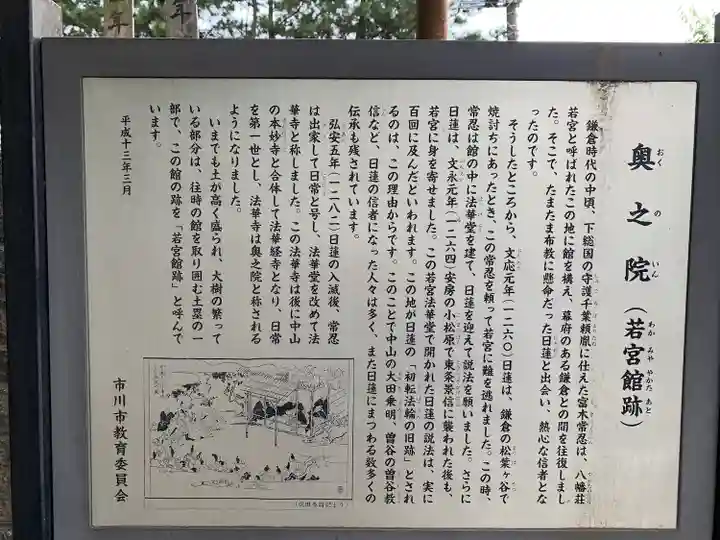 奥之院(若宮館跡)
鎌倉時代の中頃、下総国の守護千葉頼胤に仕えた富木常忍は、八幡荘
若宮と呼ばれたこの地に館を構え、幕府のある鎌倉との間を往復しまし
た。そこで、たまたま布教に懸命だった日蓮と出会い、熱心な信者とな
ったのです。
そうしたところから、文応元年(一二六〇)日蓮は、鎌倉の松葉ヶ谷で
焼討ちにあったとき、この常忍を頼って若宮に難を逃れました。この時、
常忍は館の中に法華堂を建て、日蓮を迎えて説法を願いました。さらに
日蓮は、文永元年(一二六四)安房の小松原で東条景信に襲われた後も、
若宮に身を寄せました。この若宮法華堂で開かれた日蓮の説法は、実に
百回に及んだといわれます。この地が日蓮の「初転法輪の旧跡」とされ
るのは、この理由からです。このことで中山の大田乗明、曽谷の曽谷教
信など、日蓮の信者になった人々は多く、また日蓮にまつわる数多くの
伝承も残されています。
弘安五年(一二八二)日蓮の入滅後、常忍
は出家して日常と号し、法華堂を改めて法
華寺と称しました。この法華寺は後に中山
の本妙寺と合体して法華経寺となり、日常
を第一世とし、法華寺は奥之院と称される
ようになりました。
いまでも土が高く盛られ、大樹の繁って
いる部分は、往時の館を取り囲む土塁の一
部で、この館の跡を「若宮館跡」と呼んで
います。
平成十三年三月
市川市教育委員会